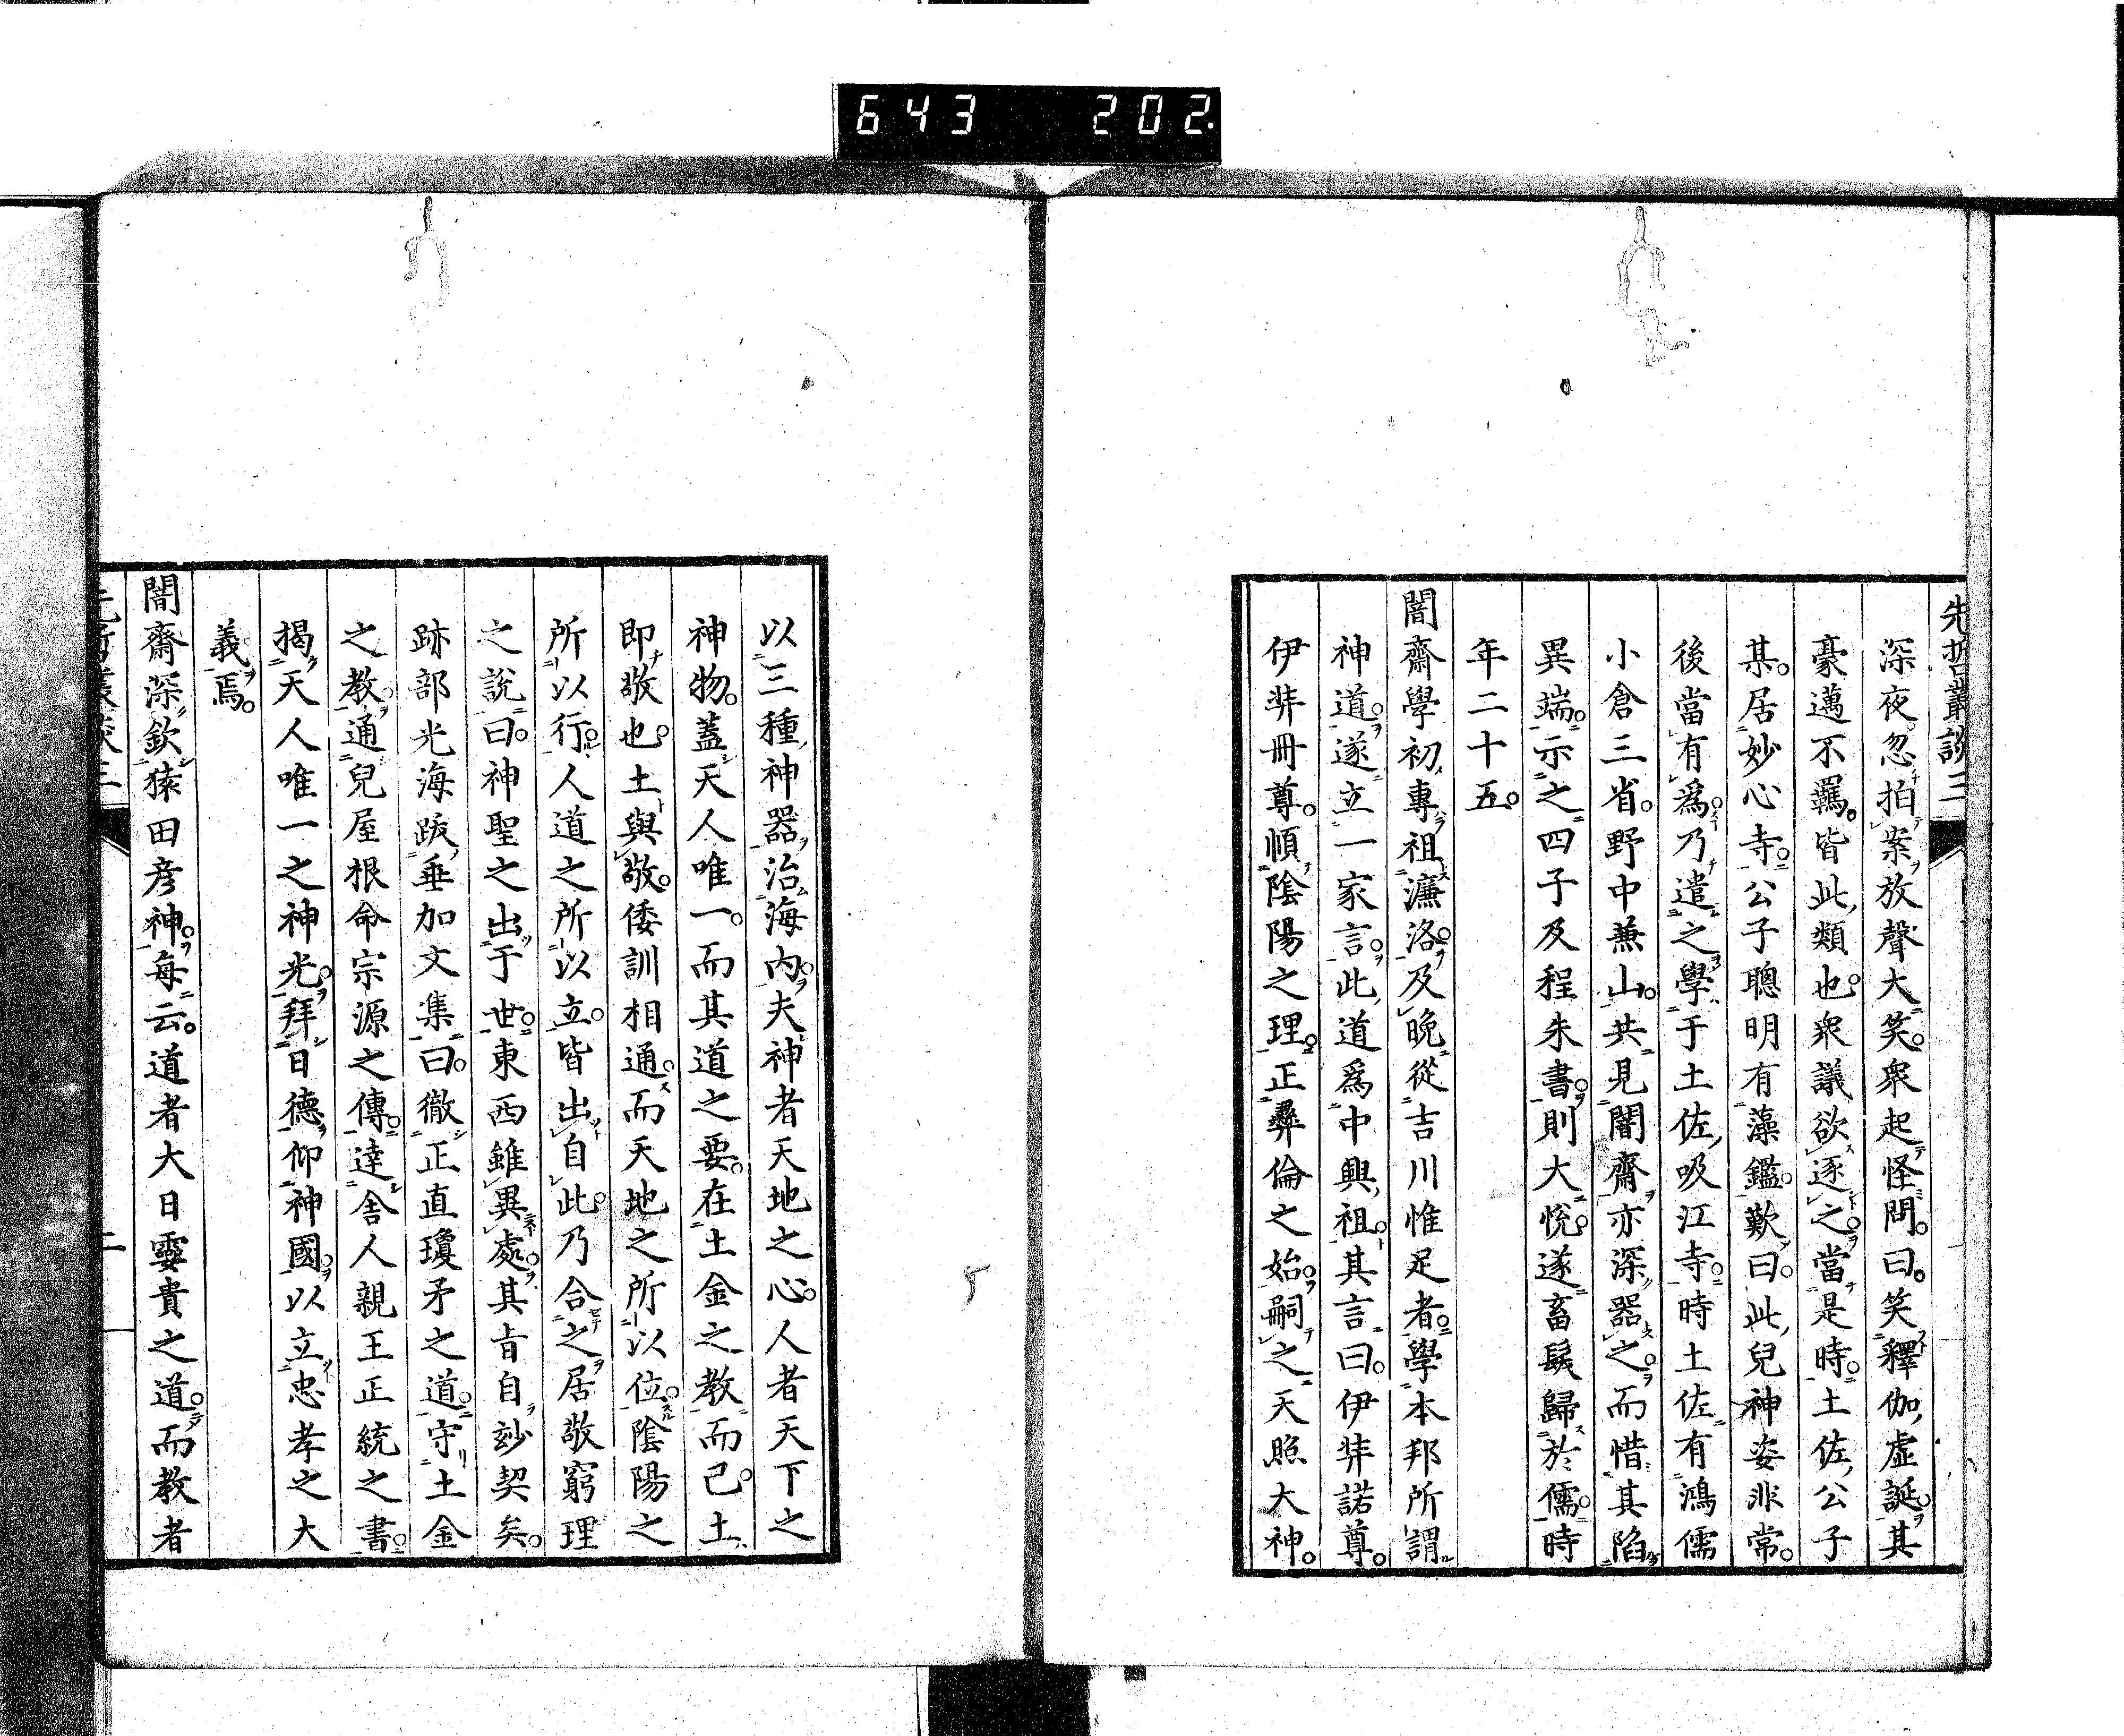 643 202.
先哲叢談三
深夜。忽拍案放聲大笑。衆起怪問。曰。笑釋伽虛誕。其
豪邁不羈。皆此類也。衆議欲逐之。當是時。土佐公子
某。居妙心寺。公子聰明有藻鑑。歎曰。此兒神姿非常。
後當有爲。乃遣之學于土佐吸江寺。時土佐有鴻儒
小倉三省。野中兼山。共見闇齋。亦深器之。而惜其陷
異端。示之四子及程朱書。則大悅。遂畜髮歸於儒。時
年二十五。
闇齋學初專祖濂洛。及晚從吉川惟足者。學本邦所謂
神道。遂立一家言。此道爲中興祖。其言曰。伊弉諾尊。
伊弉冊尊。順陰陽之理。正彝倫之始。嗣之天照大神。
以三種神器治海內。夫神者天地之心。人者天下之
神物。蓋天人唯一。而其道之要。在土金之教而已。土
即敬也。土與敬。倭訓相通。而天地之所以位。陰陽之
所以行。人道之所以立。皆出自此。乃合之居敬窮理
之說曰。神聖之出于世。東西雖異處。其旨自妙契矣。
跡部光海跋垂加文集曰。徹正直瓊矛之道。守土金
之教。通兒屋根命宗源之傳。達舍人親王正統之書。
揭天人唯一之神光。拜日德。仰神國。以立忠孝之大
義焉。
闇齋深欽猿田彦神。每云。道者大日孁貴之道。而教者
先哲叢談三
二